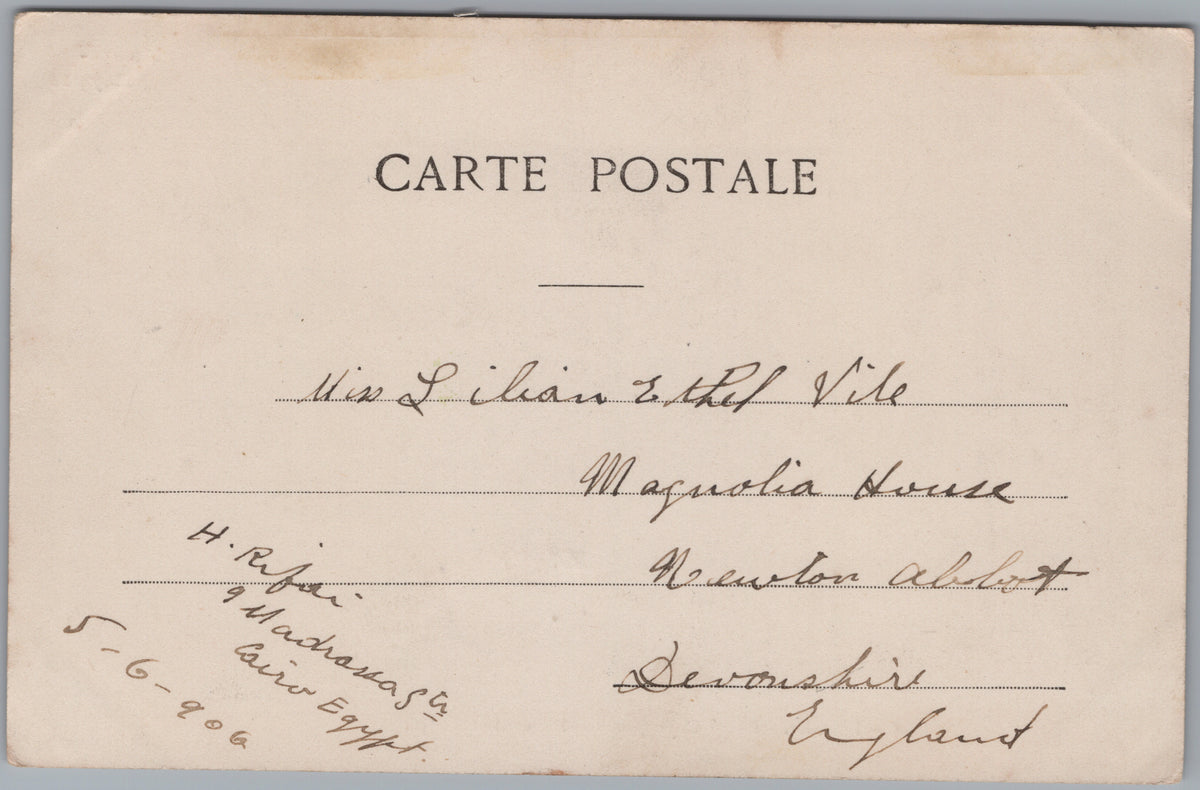 CARTE POSTALE
Miss Lilian Ethel Vile
Magnolia House
Newton Abbot
Devonshire
England
H. Rifai
9 Madrassa St.
Cairo Egypt.
5-6-906